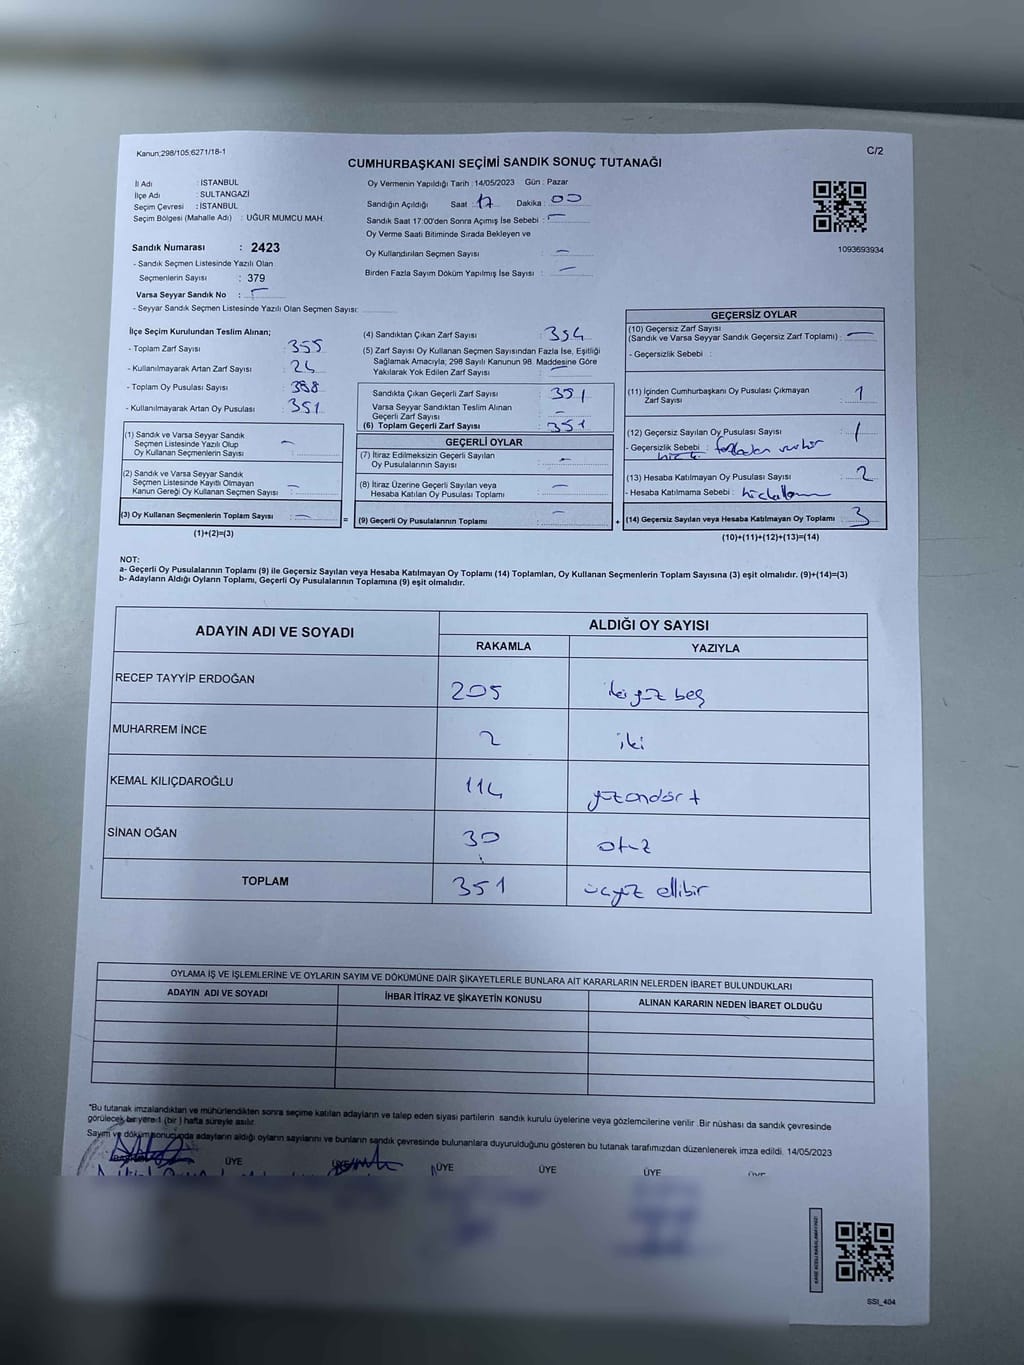 Kanun;298/105,6271/18-1
C/2
CUMHURBAŞKANI SEÇİMİ SANDIK SONUÇ TUTANAĞI
İl Adı : İSTANBUL
İlçe Adı : SULTANGAZİ
Seçim Çevresi : İSTANBUL
Seçim Bölgesi (Mahalle Adı) : UĞUR MUMCU MAH.
Sandık Numarası : 2423
- Sandık Seçmen Listesinde Yazılı Olan
Seçmenlerin Sayısı : 379
Varsa Seyyar Sandık No : -
- Seyyar Sandık Seçmen Listesinde Yazılı Olan Seçmen Sayısı:
Oy Vermenin Yapıldığı Tarih : 14/05/2023 Gün : Pazar
Sandığın Açıldığı Saat : 17 Dakika : 00
Sandık Saat 17:00'den Sonra Açımış İse Sebebi : -
Oy Verme Saati Bitiminde Sırada Bekleyen ve
Oy Kullandırılan Seçmen Sayısı : -
Birden Fazla Sayım Döküm Yapılmış İse Sayısı : -
1093693934
İlçe Seçim Kurulundan Teslim Alınan;
- Toplam Zarf Sayısı : 355
- Kullanılmayarak Artan Zarf Sayısı :
- Toplam Oy Pusulası Sayısı : 388
- Kullanılmayarak Artan Oy Pusulası : 351
(1) Sandık ve Varsa Seyyar Sandık
Seçmen Listesinde Yazılı Olup
Oy Kullanan Seçmenlerin Sayısı : -
(2) Sandık ve Varsa Seyyar Sandık
Seçmen Listesinde Kayıtlı Olmayan
Kanun Gereği Oy Kullanan Seçmen Sayısı : -
(3) Oy Kullanan Seçmenlerin Toplam Sayısı : -
(1)+(2)=(3)
=
(4) Sandıktan Çıkan Zarf Sayısı : 354
(5) Zarf Sayısı Oy Kullanan Seçmen Sayısından Fazla İse, Eşitliği
Sağlamak Amacıyla; 298 Sayılı Kanunun 98. Maddesine Göre
Yakılarak Yok Edilen Zarf Sayısı : -
Sandıkta Çıkan Geçerli Zarf Sayısı : 351
Varsa Seyyar Sandıktan Teslim Alınan
Geçerli Zarf Sayısı : -
(6) Toplam Geçerli Zarf Sayısı : 351
GEÇERLİ OYLAR
(7) İtiraz Edilmeksizin Geçerli Sayılan
Oy Pusulalarının Sayısı : -
(8) İtiraz Üzerine Geçerli Sayılan veya
Hesaba Katılan Oy Pusulası Toplamı : -
(9) Geçerli Oy Pusulalarının Toplamı : -
+
GEÇERSİZ OYLAR
(10) Geçersiz Zarf Sayısı
(Sandık ve Varsa Seyyar Sandık Geçersiz Zarf Toplamı) : -
- Geçersizlik Sebebi :
(11) İçinden Cumhurbaşkanı Oy Pusulası Çıkmayan
Zarf Sayısı : 1
(12) Geçersiz Sayılan Oy Pusulası Sayısı : 1
- Geçersizlik Sebebi : fazladan mühür
(13) Hesaba Katılmayan Oy Pusulası Sayısı : 2
- Hesaba Katılmama Sebebi :
(14) Geçersiz Sayılan veya Hesaba Katılmayan Oy Toplamı : 3
(10)+(11)+(12)+(13)=(14)
NOT:
a- Geçerli Oy Pusulalarının Toplamı (9) ile Geçersiz Sayılan veya Hesaba Katılmayan Oy Toplamı (14) Toplamları, Oy Kullanan Seçmenlerin Toplam Sayısına (3) eşit olmalıdır. (9)+(14)=(3)
b- Adayların Aldığı Oyların Toplamı, Geçerli Oy Pusulalarının Toplamına (9) eşit olmalıdır.
ADAYIN ADI VE SOYADI
ALDIĞI OY SAYISI
RAKAMLA
YAZIYLA
RECEP TAYYİP ERDOĞAN 205 iki yüz beş
MUHARREM İNCE 2 iki
KEMAL KILIÇDAROĞLU 114 yüzondört
SİNAN OĞAN 30 otuz
TOPLAM 351 üçyüz ellibir
OYLAMA İŞ VE İŞLEMLERİNE VE OYLARIN SAYIM VE DÖKÜMÜNE DAİR ŞİKAYETLERLE BUNLARA AİT KARARLARIN NELERDEN İBARET BULUNDUKLARI
ADAYIN ADI VE SOYADI
İHBAR İTİRAZ VE ŞİKAYETİN KONUSU
ALINAN KARARIN NEDEN İBARET OLDUĞU
*Bu tutanak imzalandıktan ve mühürlendikten sonra seçime katılan adayların ve talep eden siyasi partilerin sandık kurulu üyelerine veya gözlemcilerine verilir .Bir nüshası da sandık çevresinde
görülecek bir yere 1 (bir ) hafta süreyle asılır.
Sayım ve döküm sonucunda adayların aldığı oyların sayılarını ve bunların sandık çevresinde bulunanlara duyurulduğunu gösteren bu tutanak tarafımızdan düzenlenerek imza edildi. 14/05/2023
ÜYE ÜYE ÜYE ÜYE ÜYE
SSI_404